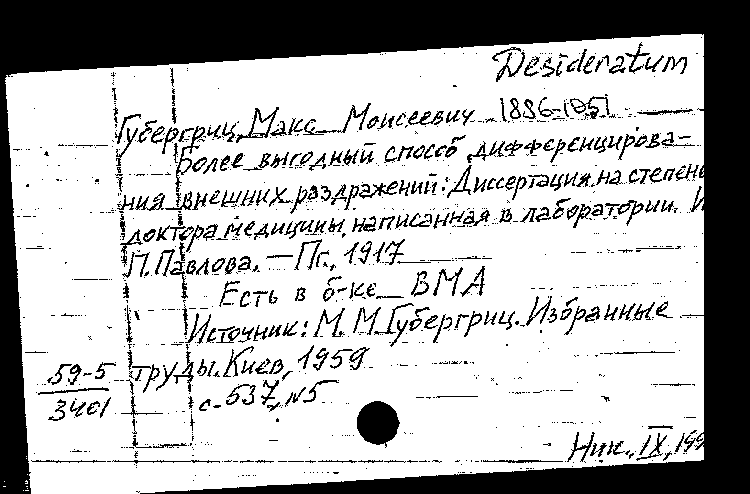 Desideratum
Губергриц, Макс Моисеевич 1886-1951
Более выгодный способ дифференцирова-
ния внешних раздражений: Диссертация на степень
доктора медицины, написанная в лаборатории. И
П. Павлова. — Пг., 1917
Есть в б-ке ВМА
Источник: М. М. Губергриц. Избранные
труды. Киев, 1959
59-5
3401
с. 537, №5
IX, 199